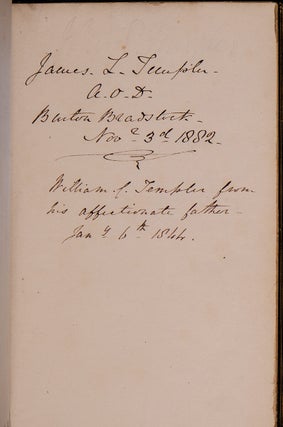 James. L. Templer.
A.O.D.
Burton Bradstock.
Novr. 3d. 1882.
William C. Templer from
his affectionate father.
Jany. 6th. 1844.